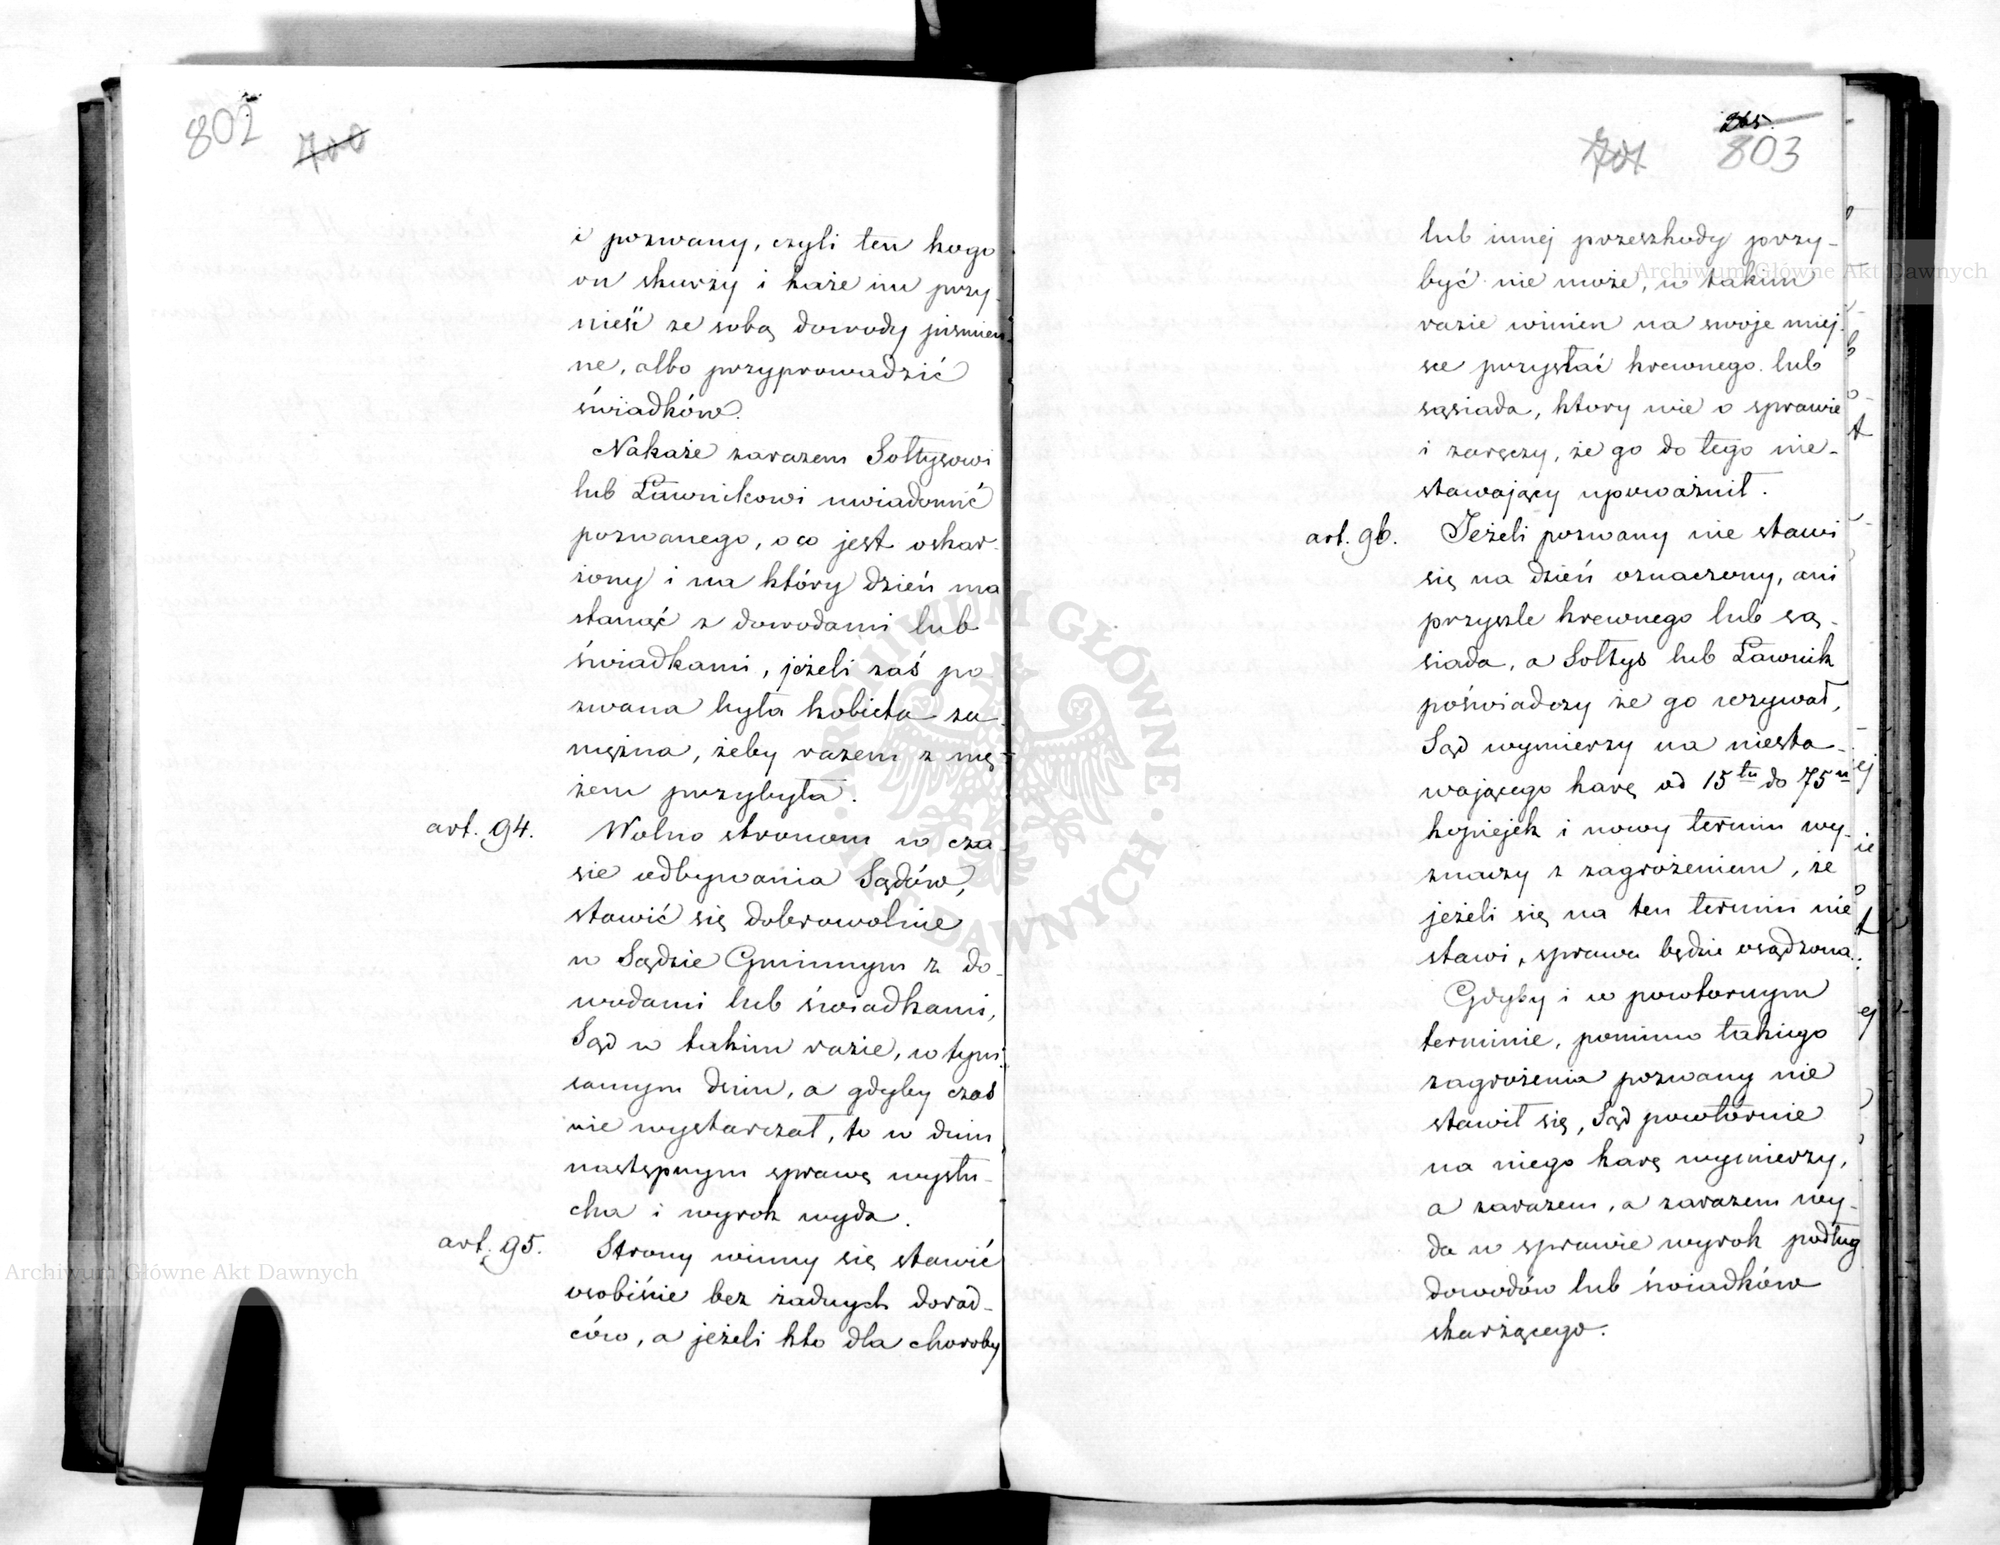 802 700
i pozwany, czyli ten kogo
on skarży i każe im przy-
nieść ze sobą dowody piśmien-
ne, albo przyprowadzić
świadków.
Nakaże zarazem Sołtysowi
lub Ławnikowi uwiadomić
pozwanego, o co jest oskar-
żony i na który dzień ma
stanąć z dowodami lub
świadkami, jeżeli zaś po
zwana była kobieta za-
mężna, żeby razem z mę-
żem przybyła.
art. 94. Wolno stronom w cza
sie odbywania Sądów,
stawić się dobrowolnie
w Sądzie Gminnym z do-
wodami lub świadkami,
Sąd w takim razie, w tym
samym dniu, a gdyby czas
nie wystarczał, to w dniu
następnym sprawę wysłu-
cha i wyrok wyda.
art. 95. Strony winny się stawić
osobiście bez żadnych dorad-
ców, a jeżeli kto dla choroby
265.
701 803
lub innej przeszkody przy-
być nie może, w takim
razie winien na swoje miej-
sce przysłać krewnego lub
sąsiada, ktory wie o sprawie
i zaręczy, że go do tego nie-
stawający upoważnił.
art. 96. Jeżeli pozwany nie stawi
się na dzień oznaczony, ani
przyszle krewnego lub są-
siada, a Sołtys lub Ławnik
poświadczy że go wzywał,
Sąd wymierzy na niesta-
wającego karę od 15tu do 75u
kopiejek i nowy termin wy-
znaczy z zagrożeniem, że
jeżeli się na ten termin nie
stawi, sprawa będzie osądzona.
Gdyby i w powtornym
terminie, pomimo takiego
zagrożenia pozwany nie
stawił się, Sąd powtórnie
na niego karę wymierzy,
a zarazem, a zarazem wy-
da w sprawie wyrok podług
dowodów lub świadków
skarżącego.
Archiwum Główne Akt Dawnych
Archiwum Główne Akt Dawnych
ARCHIWUM GŁÓWNE · AKT DAWNYCH ·